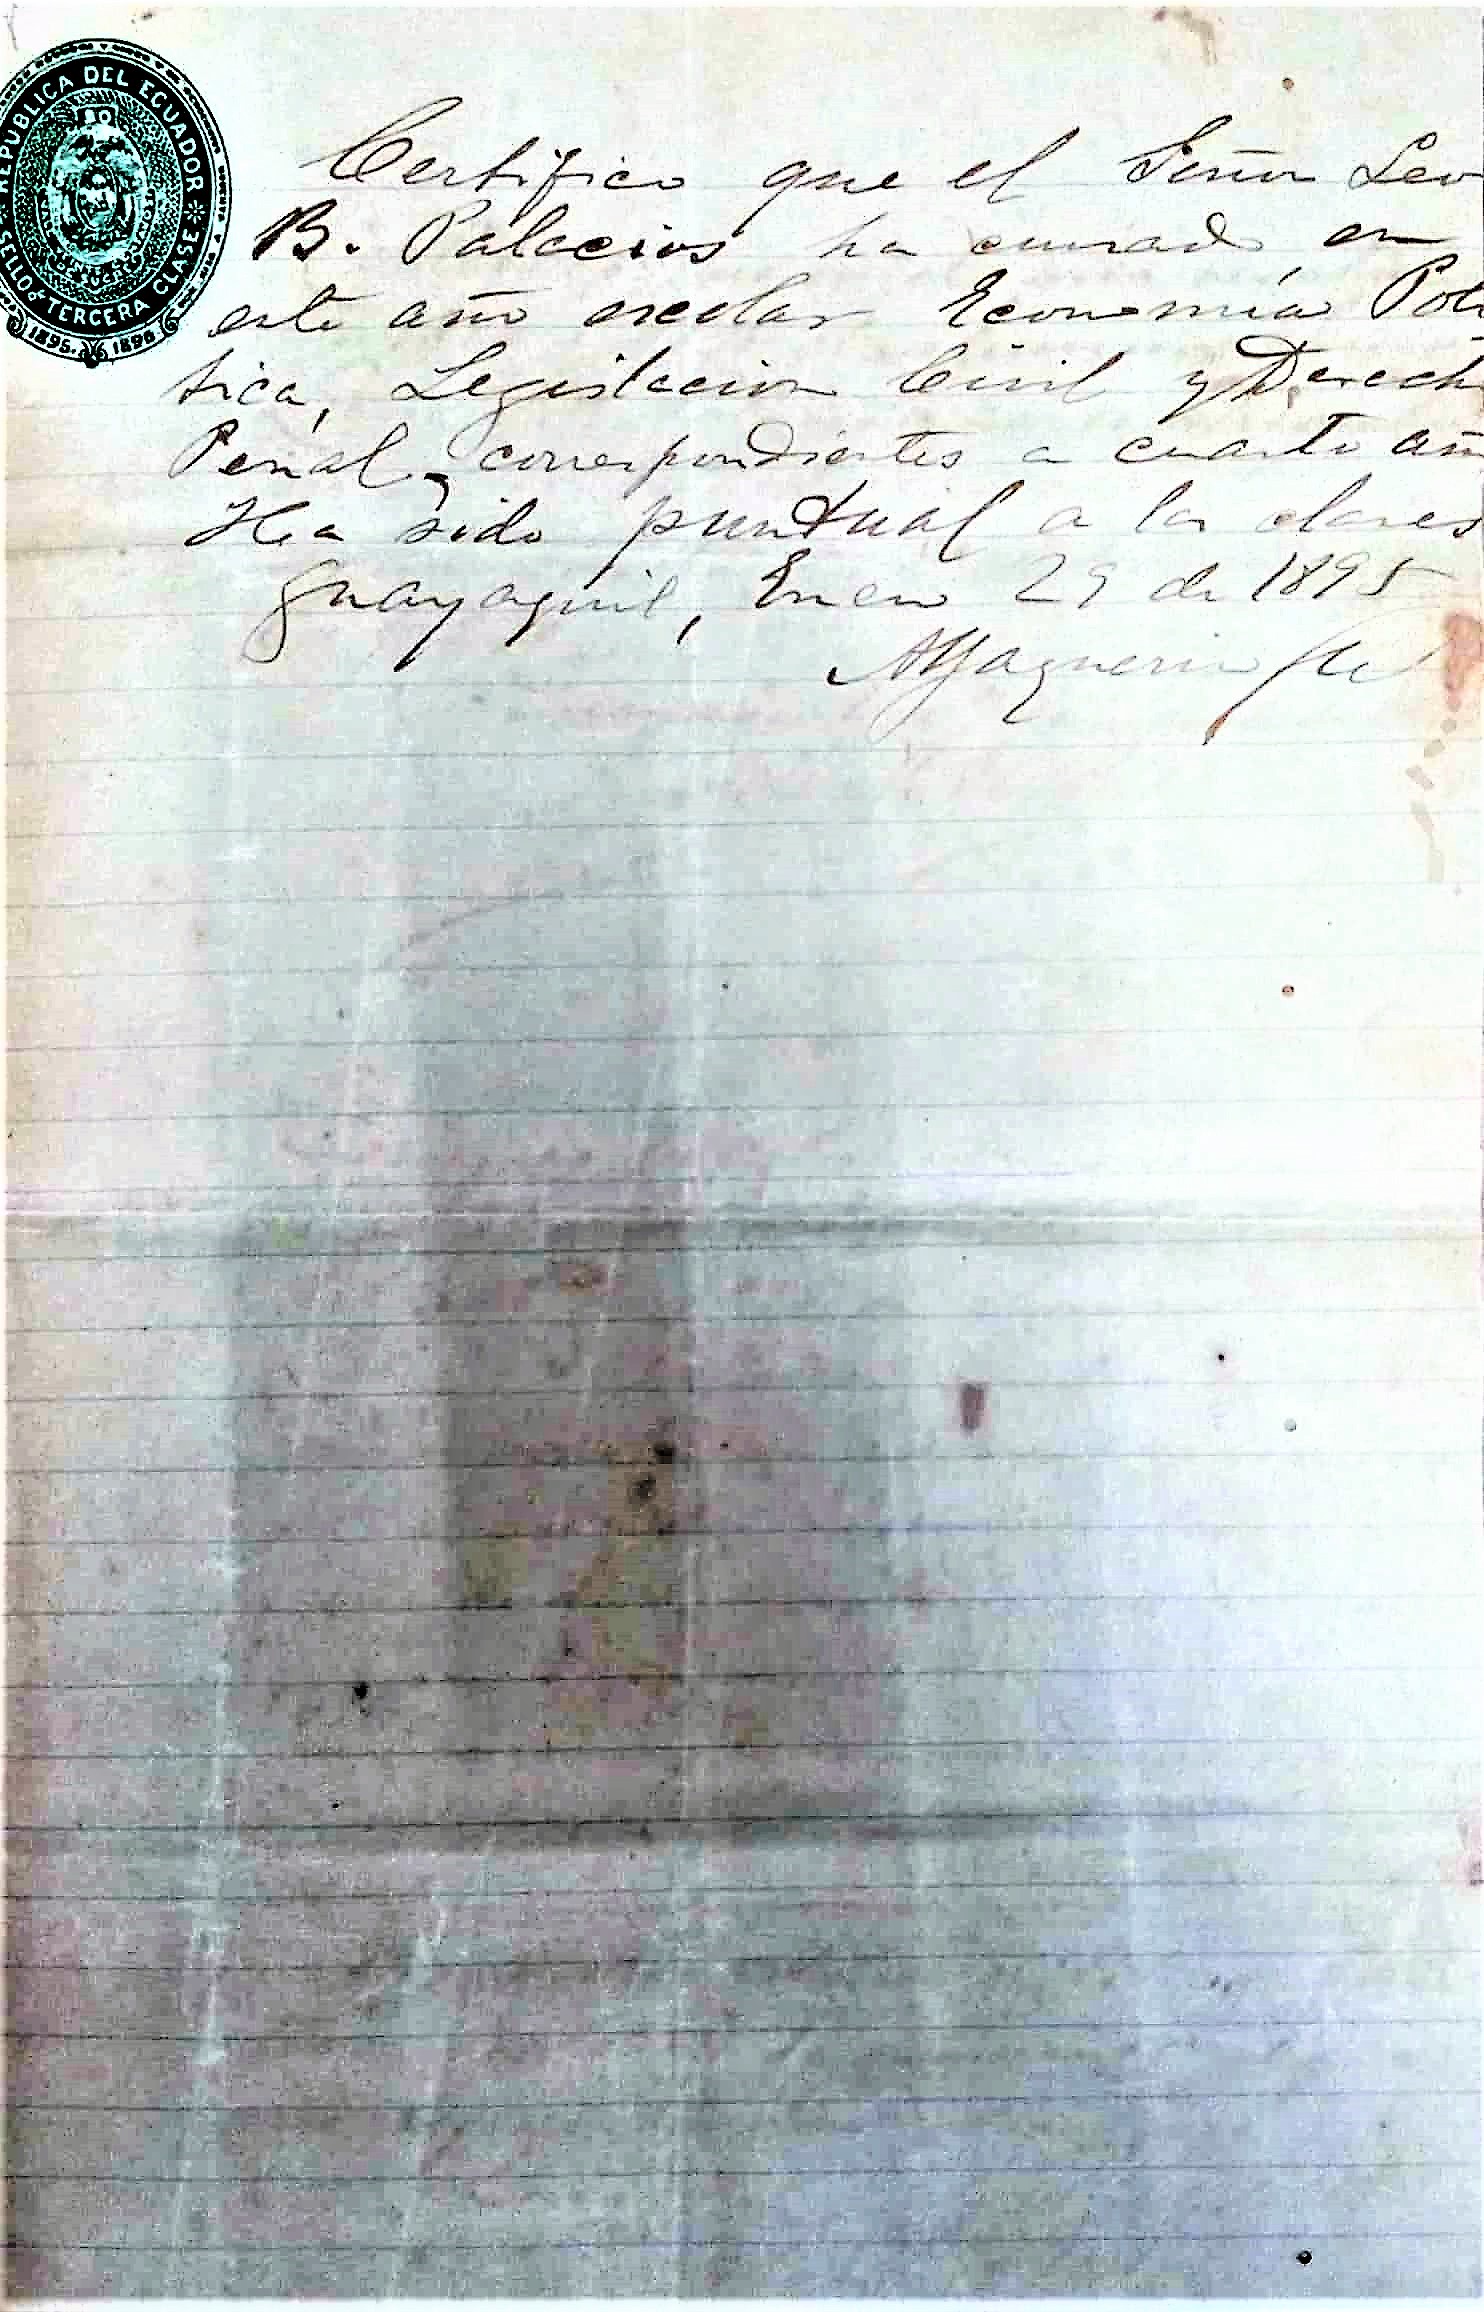 REPUBLICA DEL ECUADOR
SELLO DE TERCERA CLASE
1895. 1896
Certifico que el Señor Leo
B. Palacios ha cursado en
este año escolar Economía Polí
tica, Legislación Civil y Derech
Penal, correspondientes a cuarto añ
Ha sido puntual a las clases
Guayaquil, Enero 29 de 1895